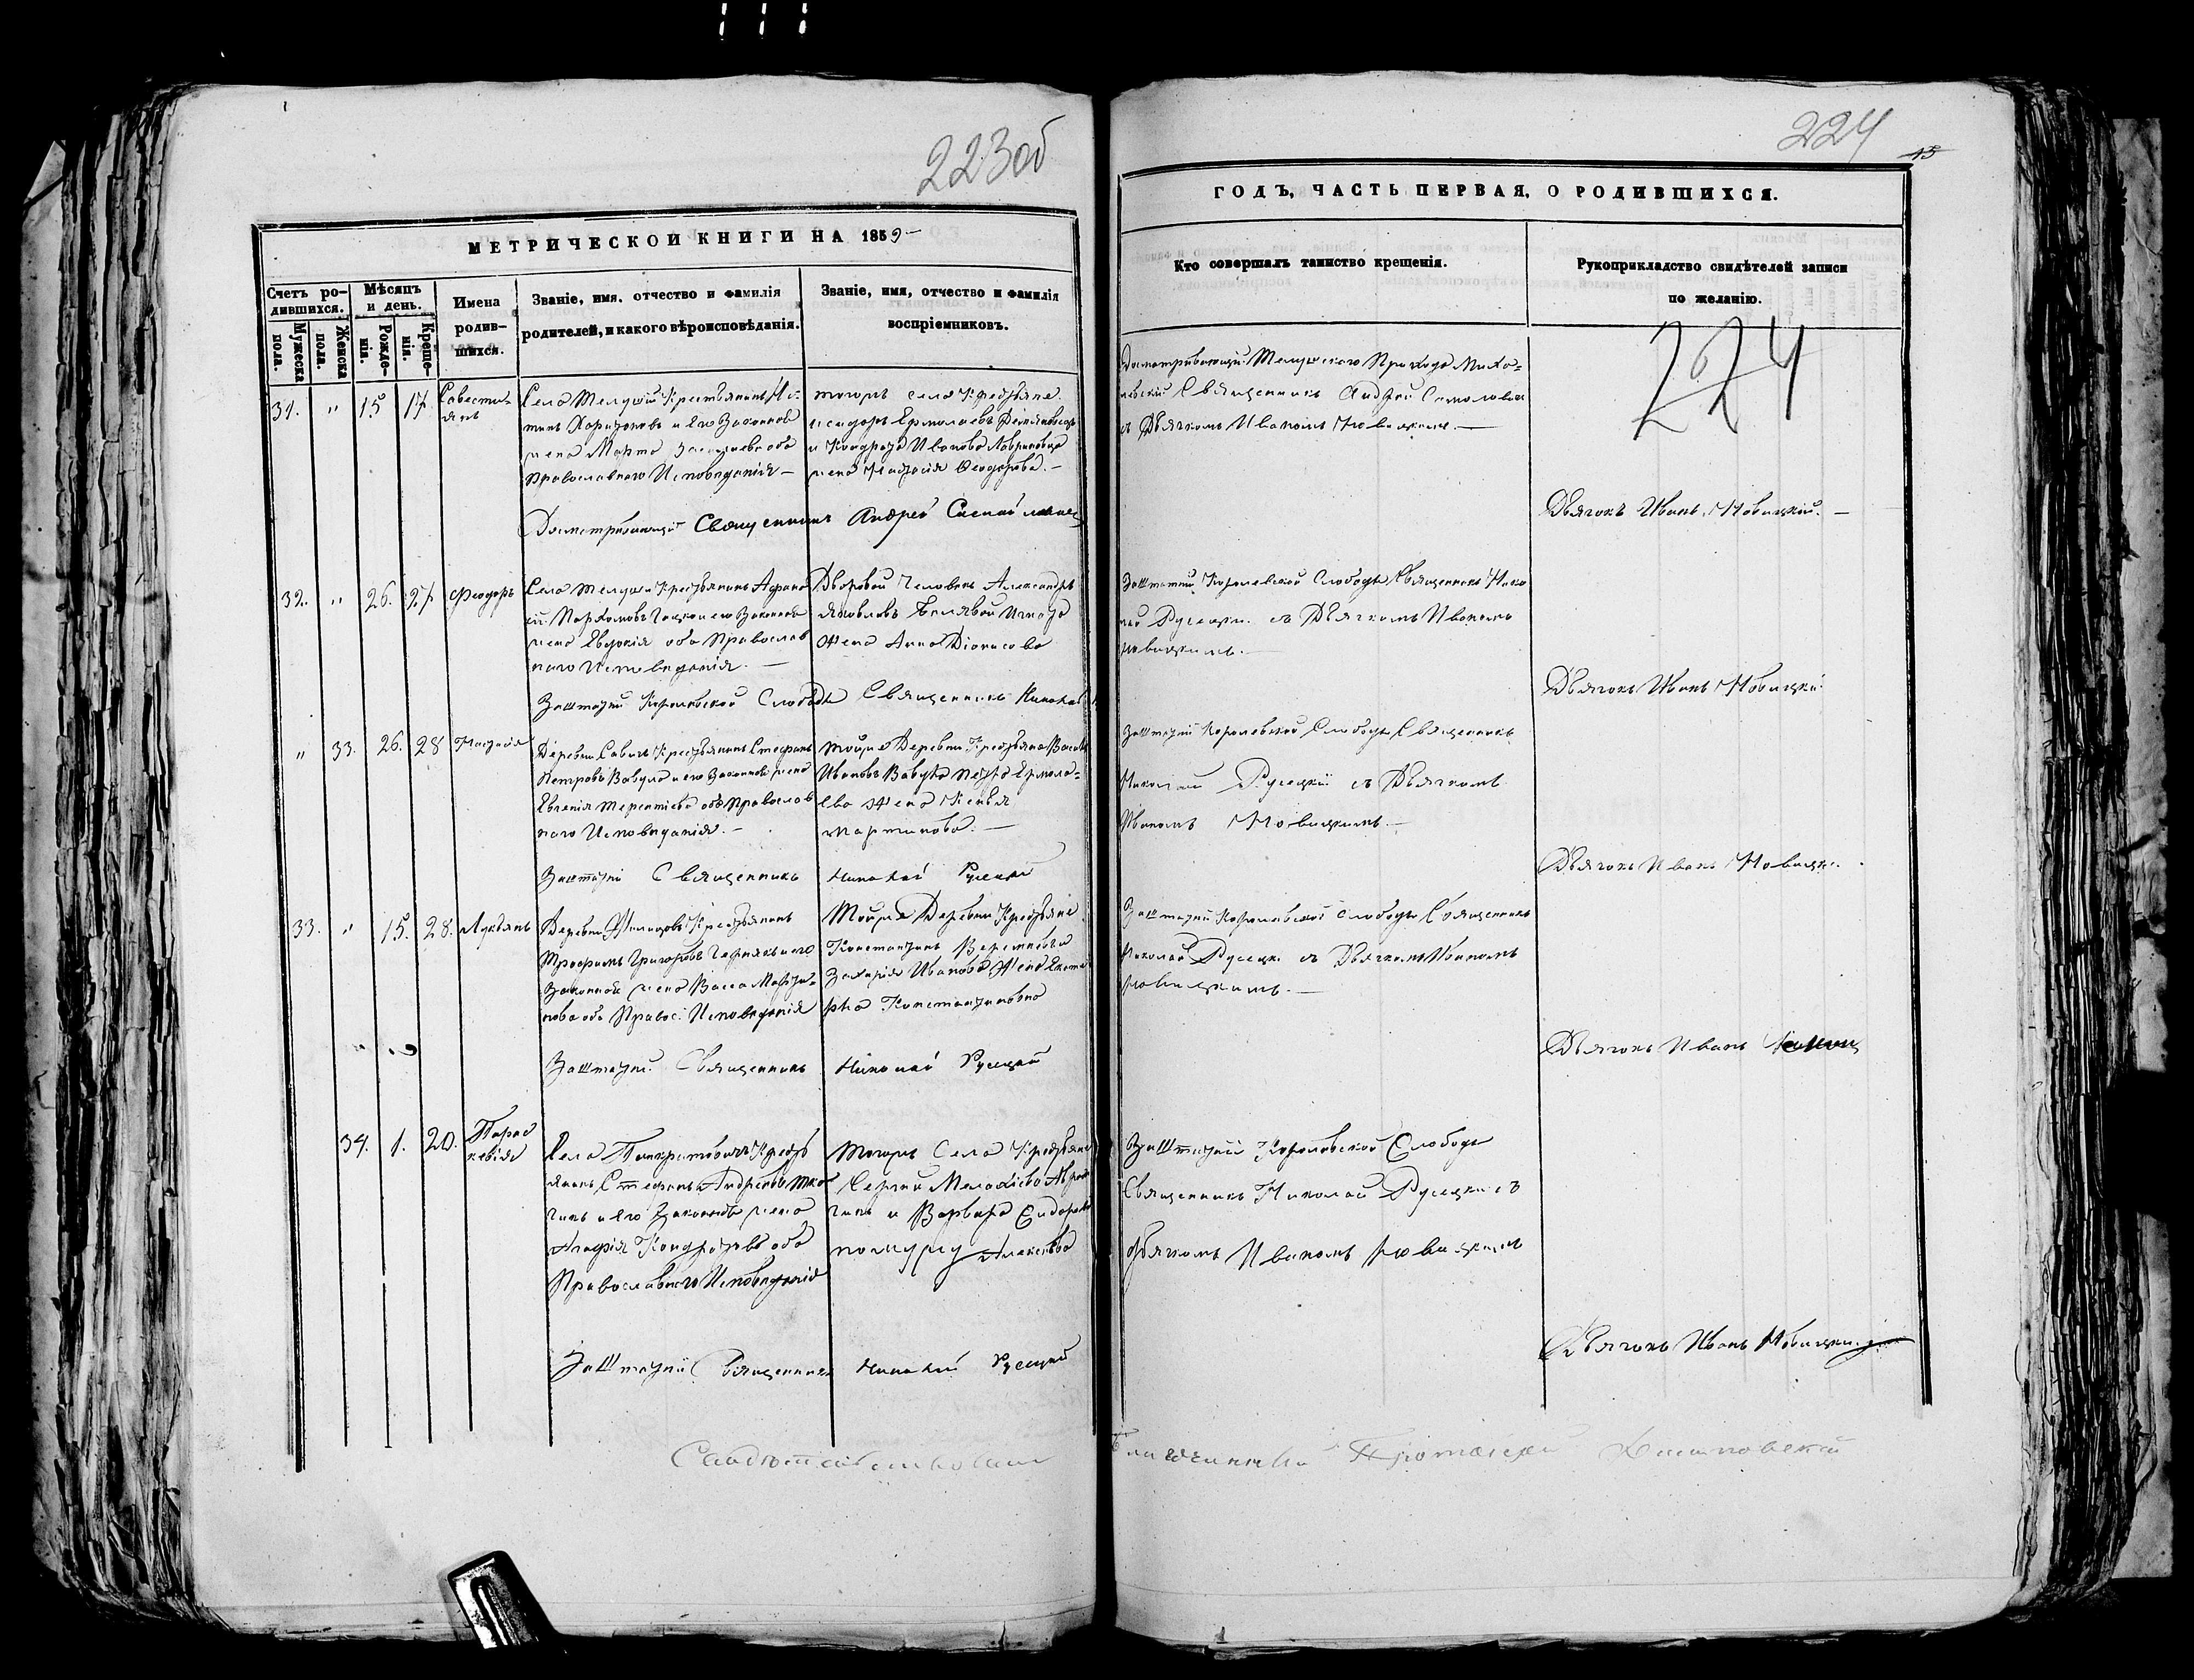 223об
МЕТРИЧЕСКОЙ КНИГИ НА 1859
Счетъ ро-
дившихся.
Мужеска
пола.
Женска
пола.
Мѣсяцъ
и день.
Рожде-
нія.
Креще-
нія.
Имена
родив-
шихся.
Званіе, имя, отчество и фамилія
родителей, и какого вѣроисповѣданія.
Званіе, имя, отчество и фамилія
воспріемниковъ.
31. " 15 17
Савести-
янъ
Села Телуши Крестьянинъ
Харитоновъ и его Законная
жена Марта оба
Православнаго Исповеданія —
тогожъ села Крестьяне
Исидоръ Ермолаевъ
и Кондрата Иванова
жена Настасія Феодорова. —
Досматривающій Священникъ Андрей
32. " 26. 27. Феодоръ
Села Телуши Крестьянинъ Афана
сій Пархомовъ и его Законная
жена Евдокія оба Православ
наго Исповеданія. —
Дворовый Человекъ Александръ
Яковлевъ
Жена Анна Діонисова
Заштатній Королевской Слободы Священникъ Николай
" 33. 26. 28 Настасія
Деревни Савичъ Крестьянинъ Стефанъ
Петровъ Вавула и его Законная жена
Евгенія Терентіева оба Православ
наго Исповеданія. —
Тойже Деревни Крестьяне
Ивановъ Вавула Петра Ермола-
ева Жена Ксенья
Мартинова. —
Заштатній Священникъ Николай Русецкій
33. " 15. 28. Лукьянъ
Деревни Крестьянинъ
Трофимъ Григоровъ и его
Законная жена Васса Марти-
нова оба Правос: Исповеданія
Тойже Деревни Крестьяне
Константинъ
Захарія Иванова Жена Екате
рина Константинова
Заштатній Священникъ Николай Русецкій
34. 1. 20.
Парас
кевія
Села Панкратовичъ Кресть
янинъ Стефанъ Андреевъ
и его Законная жена
Агафія Кондратова оба
Православнаго Исповеданія
Тогожъ Села Крестьяне
Сергій
и Варвара
Алексѣева
Заштатній Священникъ Николай Русецкій
224
15
ГОДЪ, ЧАСТЬ ПЕРВАЯ, О РОДИВШИХСЯ.
Кто совершалъ таинство крещенія.
Рукоприкладство свидѣтелей записи
по желанію.
224
Досматривающій Телушскаго Прихода
Священникъ Андрей
съ Дьячкомъ Иваномъ Новицкимъ. —
Дьячокъ Иванъ Новицкій. —
Заштатній Королевской Слободы Священникъ Нико
лай Русецкій съ Дьячкомъ Иваномъ
Новицкимъ. —
Дьячокъ Иванъ Новицкій
Заштатній Королевской Слободы Священникъ
Николай Русецкій съ Дьячкомъ
Иваномъ Новицкимъ. —
Дьячокъ Иванъ Новицкій.
Заштатній Королевской Слободы Священникъ
Николай Русецкій съ Дьячкомъ Иваномъ
Новицкимъ. —
Дьячокъ Иванъ
Заштатній Королевской Слободы
Священникъ Николай Русецкій съ
Дьячкомъ Иваномъ Новицкимъ
Дьячокъ Иванъ Новицкій
Протоіерей